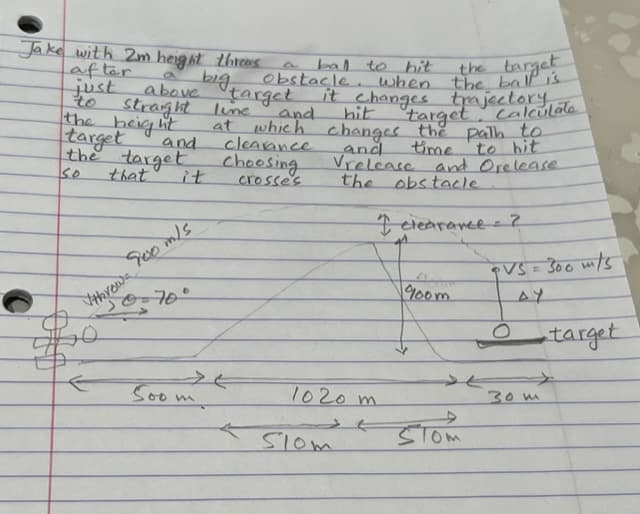 Jake with 2m height throws a ball to hit the target
after a big obstacle. when the ball is
just above target it changes trajectory
to straight line and hit target. Calculate
the height at which changes the path to
target and clearance and time to hit
the target choosing Vrelease and Orelease
so that it crosses the obstacle
↕ clearance = ?
Vthrow= 900 m/s
θ = 70°
VS = 300 m/s
900m
ΔY
target
500 m.
1020 m
30 m
510m
510m